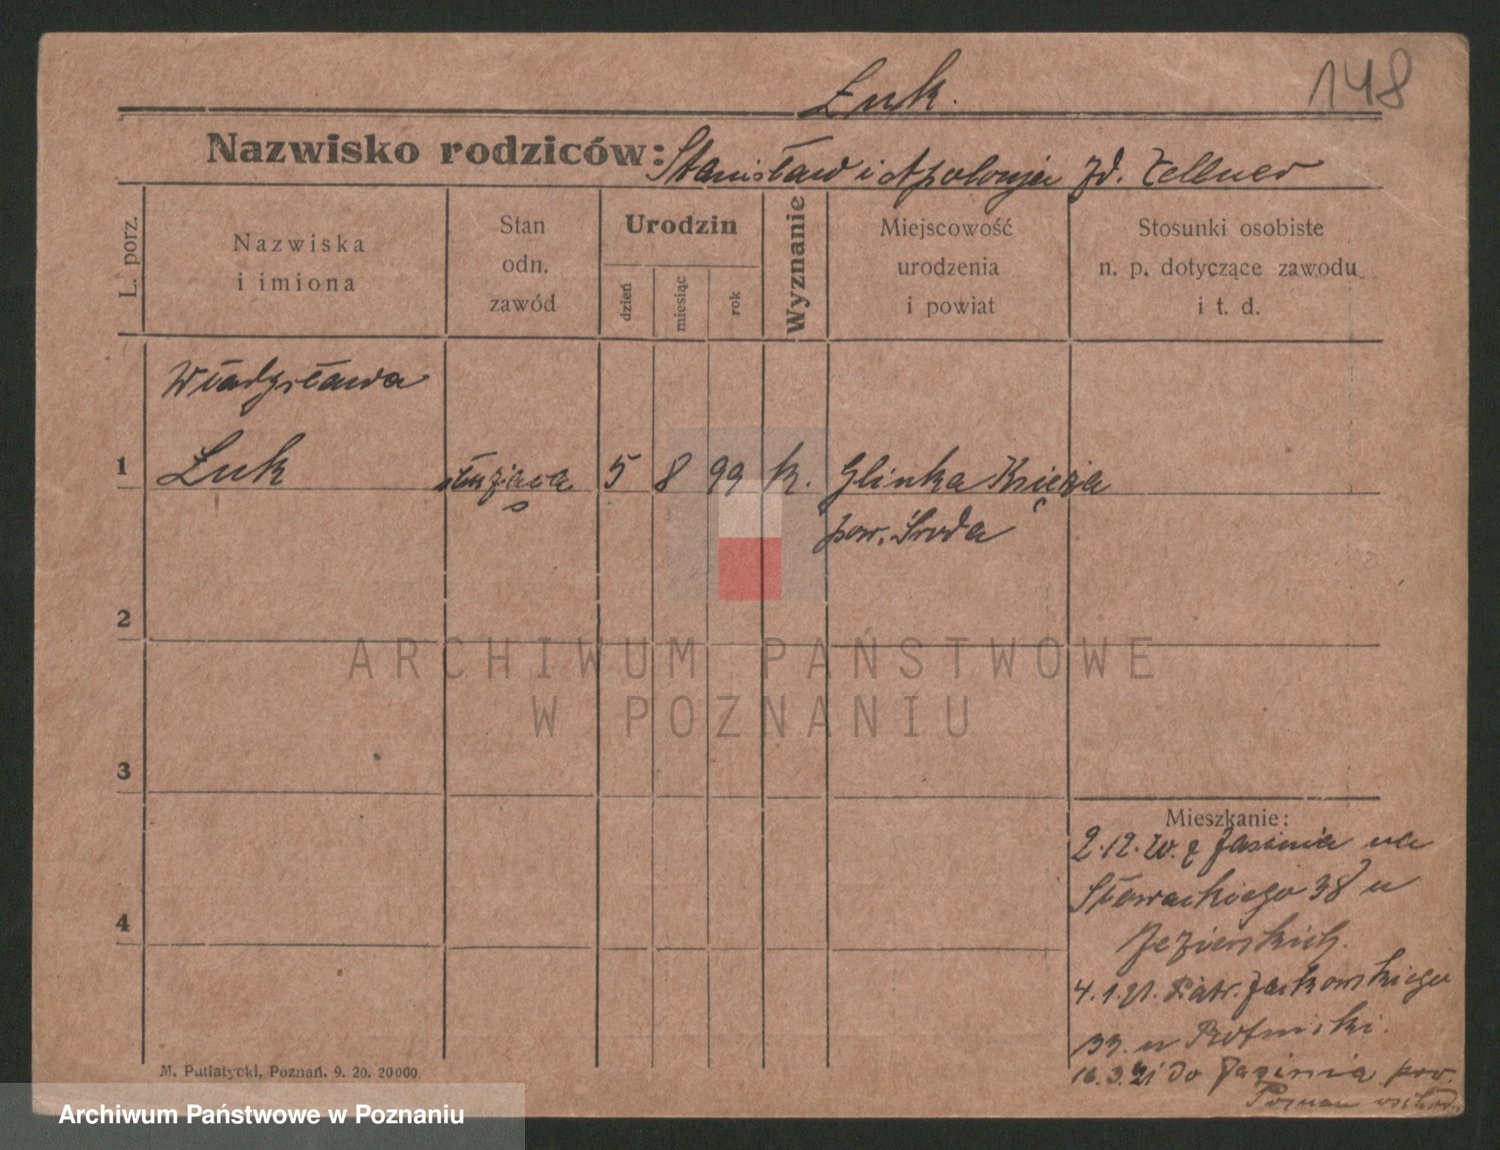 148
Żuk.
Nazwisko rodziców: Stanisław i Apolonja zd. Zellner
L. porz.
Nazwiska i imiona
Stan odn. zawód
Urodzin
dzień
miesiąc
rok
Wyznanie
Miejscowość urodzenia i powiat
Stosunki osobiste n. p. dotyczące zawodu i t. d.
Władysława
1 Żuk służąca 5 8 99 k. Glinka Księża
pow. Środa
2
3
4
Mieszkanie:
2.12.20. z Jasinia na
Słowackiego 38 u
Jezierskich.
4.1.21. Patr. Jackowskiego
33. u
16.3.21 do Jasinia pow.
Poznań wschód.
M. Putiatycki, Poznań. 9. 20. 20000.
ARCHIWUM PAŃSTWOWE
W POZNANIU
Archiwum Państwowe w Poznaniu